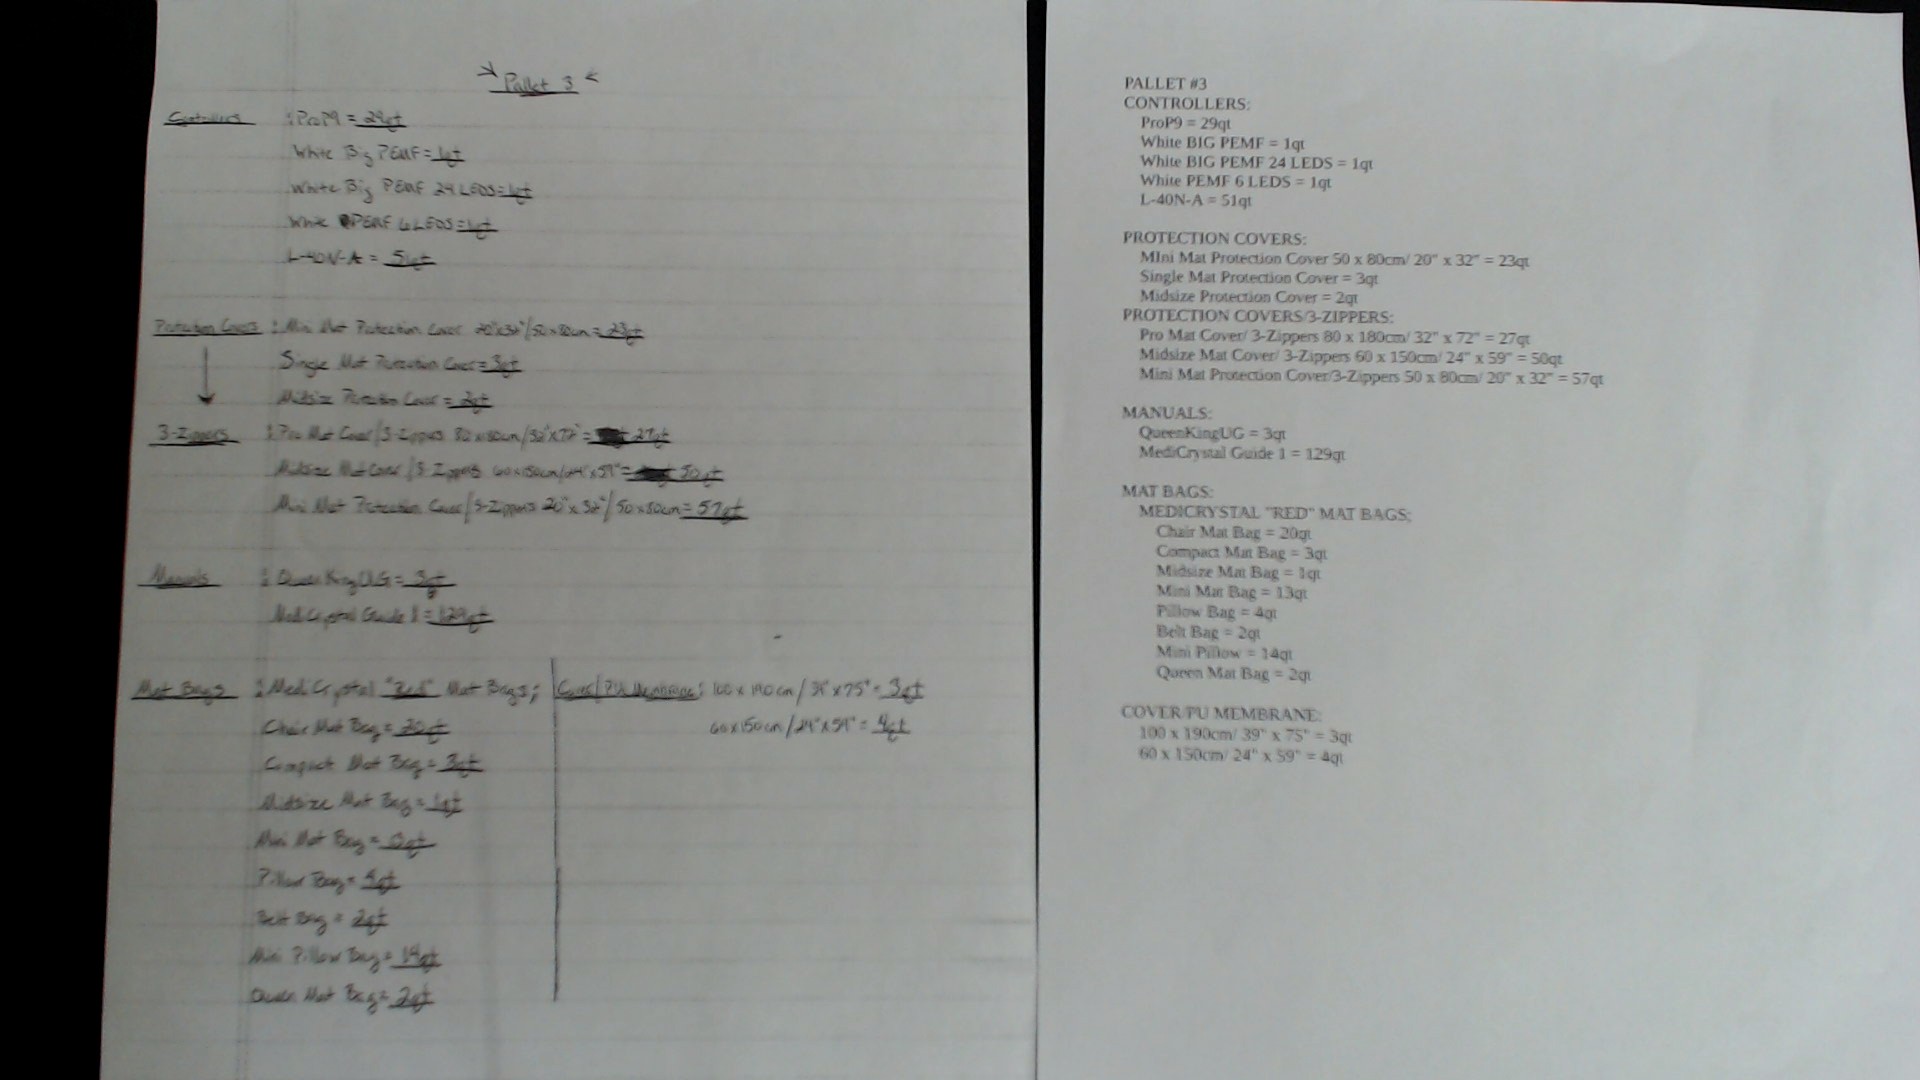 Pallet 3
Controllers : ProP9 = 29qt
White Big PEMF = 1qt
White Big PEMF 24 LEDS = 1qt
White PEMF 6 LEDS = 1qt
L-40N-A = 51qt
Protection Covers : Mini Mat Protection Cover 20"x32"/50x80cm = 23qt
Single Mat Protection Cover = 3qt
Midsize Protection Cover = 2qt
3-Zippers : Pro Mat Cover/3-Zippers 32"x72" = 27qt
Midsize Mat Cover/3-Zippers 60x150cm/24"x59" = 50qt
Mini Mat Protection Cover/3-Zippers 20"x32"/50x80cm = 57qt
Manuals : QueenKingUG = 3qt
MediCrystal Guide 1 = 129qt
Mat Bags : MediCrystal "Red" Mat Bags;
Chair Mat Bag = 20qt
Compact Mat Bag = 3qt
Midsize Mat Bag = 1qt
Mini Mat Bag =
Pillow Bag = 4qt
Belt Bag = 2qt
Mini Pillow Bag = 14qt
Queen Mat Bag = 2qt
Cover/PU Membrane : 100x190cm/39"x75" = 3qt
60x150cm/24"x59" = 4qt
PALLET #3
CONTROLLERS:
ProP9 = 29qt
White BIG PEMF = 1qt
White BIG PEMF 24 LEDS = 1qt
White PEMF 6 LEDS = 1qt
L-40N-A = 51qt
PROTECTION COVERS:
MIni Mat Protection Cover 50 x 80cm/ 20" x 32" = 23qt
Single Mat Protection Cover = 3qt
Midsize Protection Cover = 2qt
PROTECTION COVERS/3-ZIPPERS:
Pro Mat Cover/ 3-Zippers 80 x 180cm/ 32" x 72" = 27qt
Midsize Mat Cover/ 3-Zippers 60 x 150cm/ 24" x 59" = 50qt
Mini Mat Protection Cover/3-Zippers 50 x 80cm/ 20" x 32" = 57qt
MANUALS:
QueenKingUG = 3qt
MediCrystal Guide 1 = 129qt
MAT BAGS:
MEDICRYSTAL "RED" MAT BAGS;
Chair Mat Bag = 20qt
Compact Mat Bag = 3qt
Midsize Mat Bag = 1qt
Mini Mat Bag = 13qt
Pillow Bag = 4qt
Belt Bag = 2qt
Mini Pillow = 14qt
Queen Mat Bag = 2qt
COVER/PU MEMBRANE:
100 x 190cm/ 39" x 75" = 3qt
60 x 150cm/ 24" x 59" = 4qt